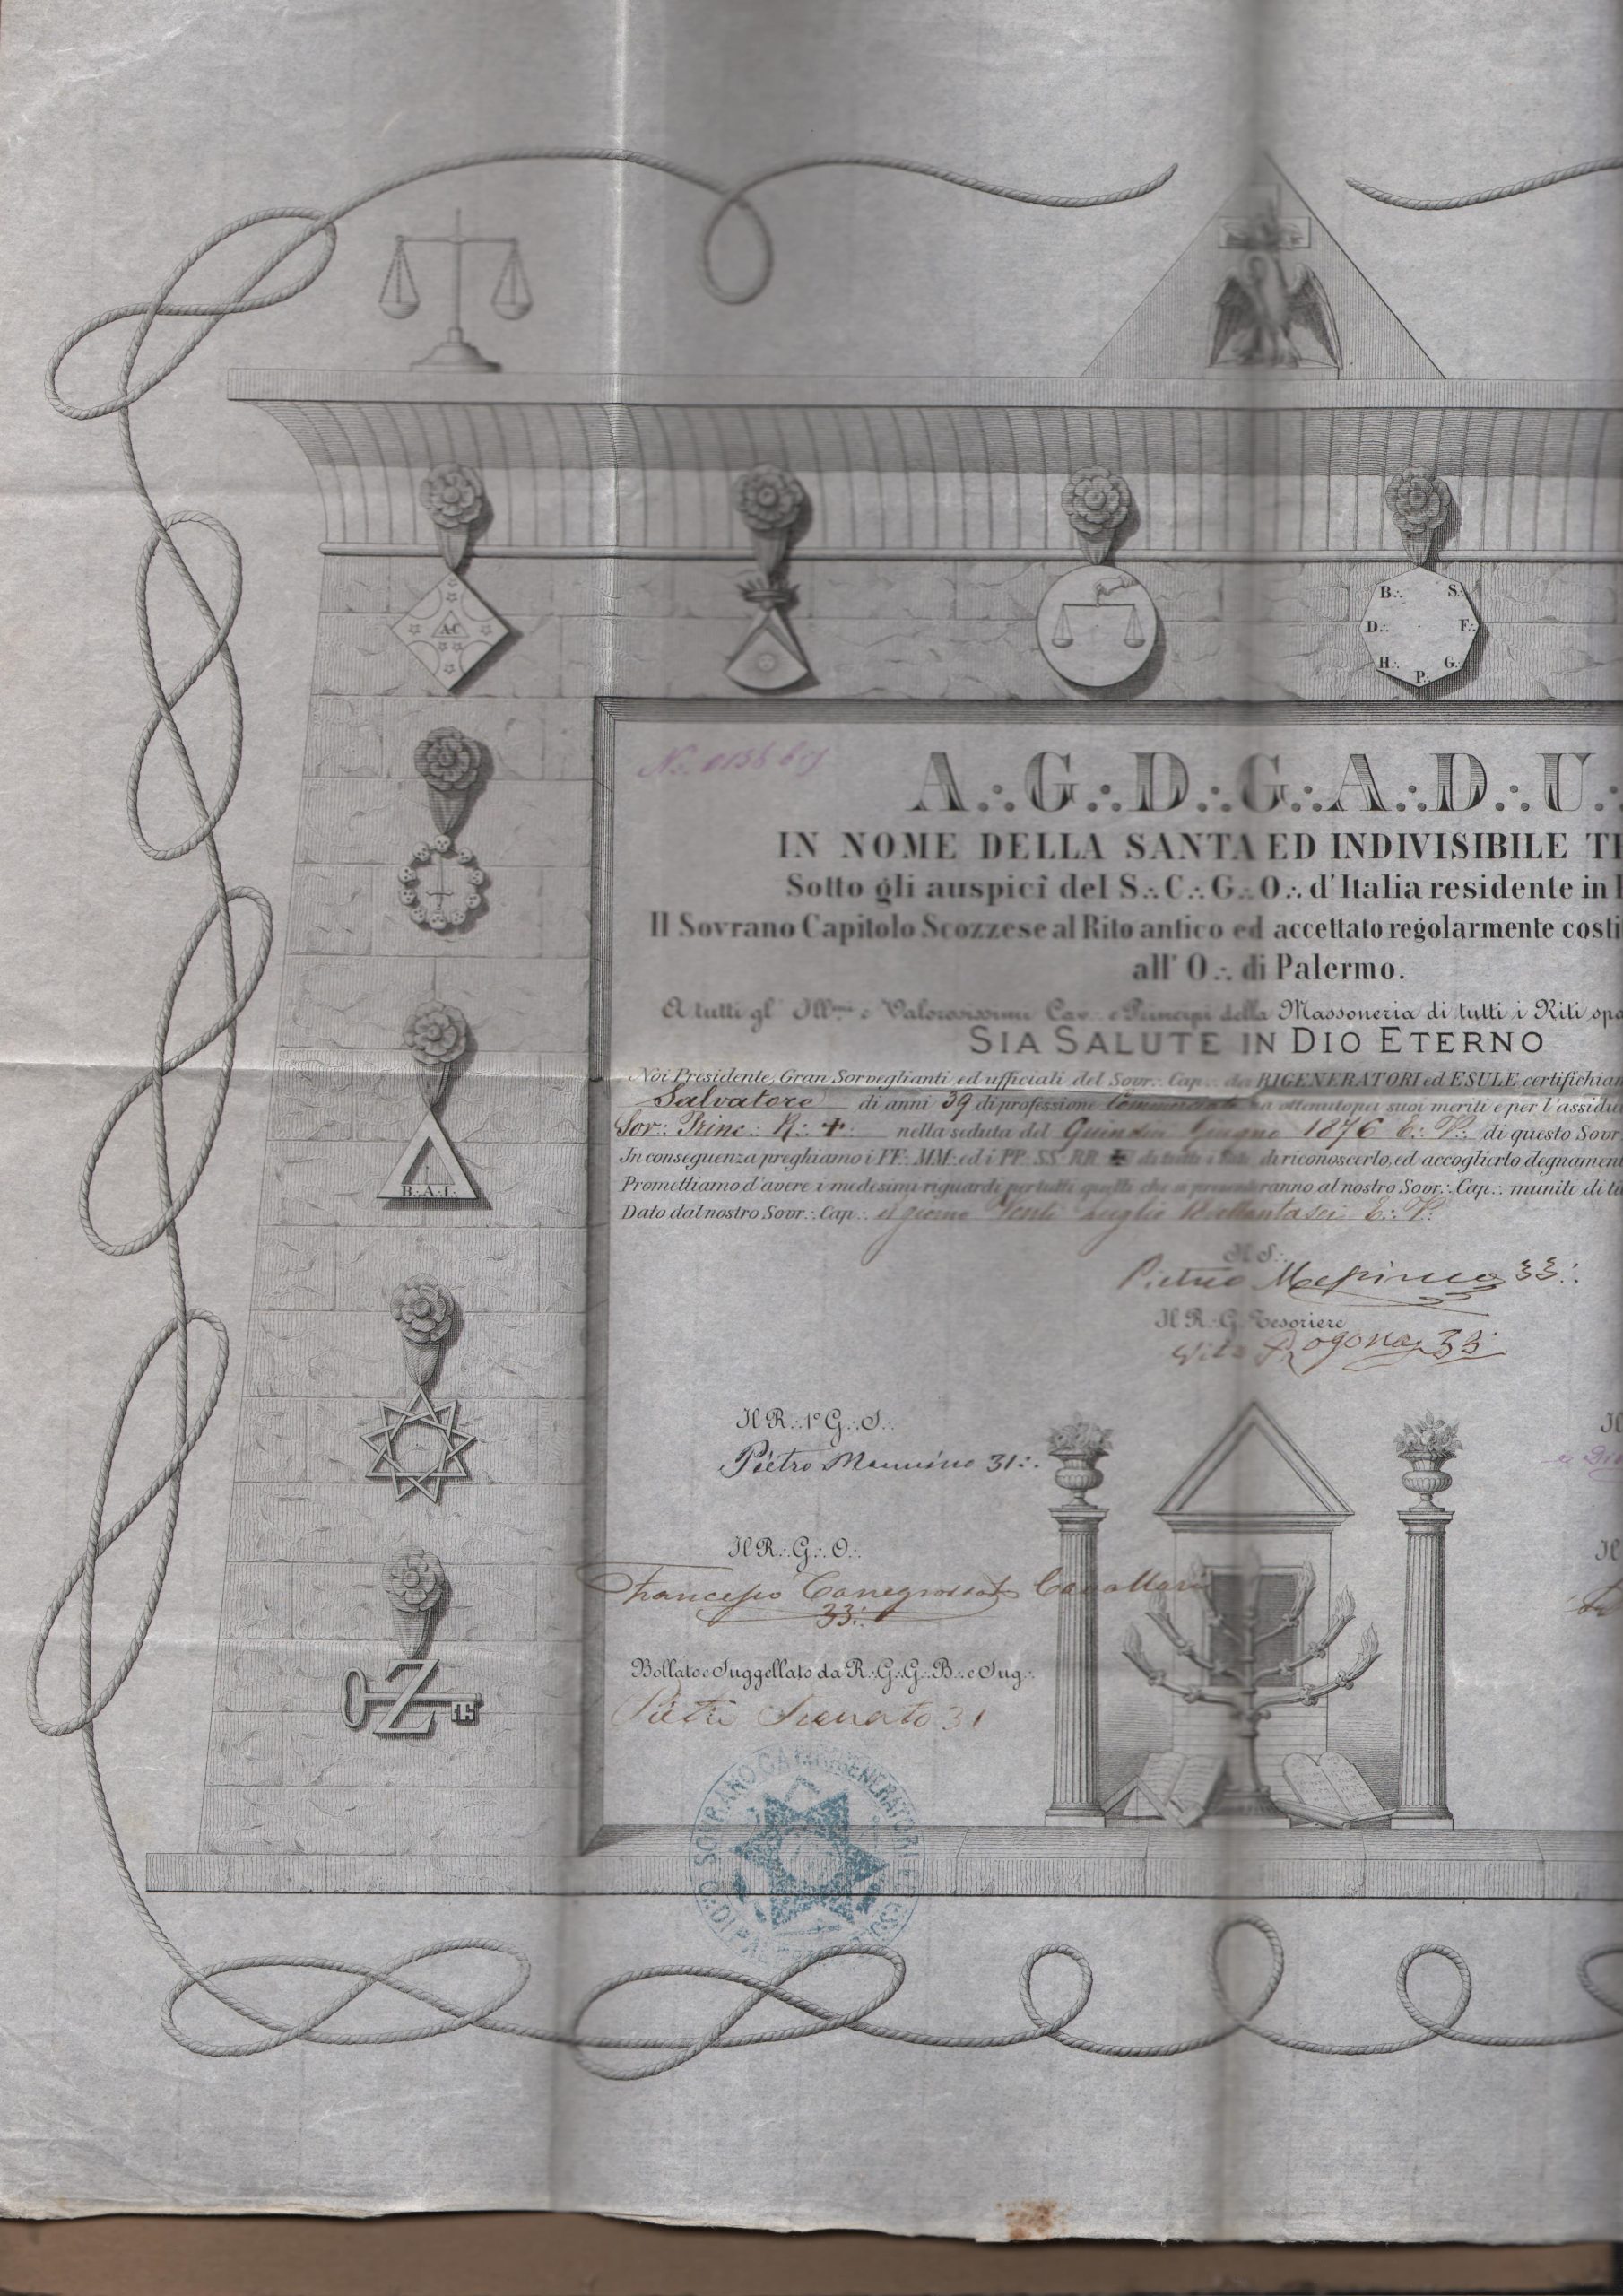 A.C.
B∴ S∴
D∴ F∴
H∴ G∴
P∴
A∴G∴D∴G∴A∴D∴U∴
IN NOME DELLA SANTA ED INDIVISIBILE
Sotto gli auspicî del S∴ C∴ G∴ O∴ d'Italia residente in
Il Sovrano Capitolo Scozzese al Rito antico ed accettato regolarmente costi
all' O∴ di Palermo.
A tutti gl' Ill.mi e Valorosissimi Cav∴ e Principi della Massoneria di tutti i Riti spa
SIA SALUTE IN DIO ETERNO
Noi Presidente, Gran Sorveglianti ed ufficiali del Sovr∴ Cap∴ dei RIGENERATORI ed ESULE certifichiam
Salvatore di anni 39 di professione Commerciante ha ottenuto pei suoi meriti e per l'assidu
Sov∴ Princ∴ R∴ ✝∴ nella seduta del Quindici Giugno 1876 E∴ V∴ di questo Sovr
In conseguenza preghiamo i FF∴ MM∴ ed i PP∴ SS∴ RR∴ ✠ di tutti i Riti di riconoscerlo, ed accoglierlo degnamen
Promettiamo d'avere i medesimi riguardi per tutti quelli che si presenteranno al nostro Sovr∴ Cap∴ muniti di
Dato dal nostro Sovr∴ Cap∴ il giorno Venti Luglio E∴ V∴
Il S∴
Pietro 33∴
Il R∴ G∴ Tesoriere
Vito Ragona 33∴
B∴A∴I∴
Il R∴ 1º G∴ S∴
Pietro Mannino 31∴
Il R∴ G∴ O∴
Francesco 33∴
Bollato e Suggellato da R∴ G∴ G∴ B∴ e Sug∴
31
Z
SOVRANO CAP RIGENERATORI
O∴ DI